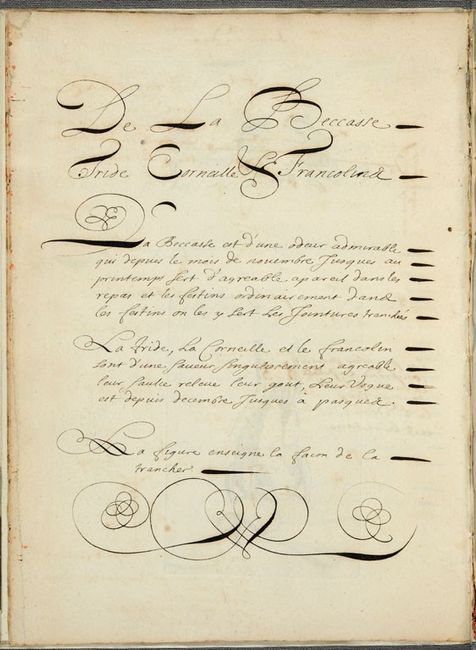 De La Beccasse
Tride Corneille Et Francolins
La Beccasse est d'une odeur admirable
qui depuis le mois de novembre Jusques au
printemps sert d'agreable apareil dans les
repas et les festins ordinairement dans
les festins on les y sert Les Jointures tranchés
La Tride, La Corneille et le francolin
sont d'une saveur singulierement agreable
leur saulce releve leur gout, Leur Vogue
est depuis decembre Jusques à pasques.
La figure enseigne la facon de la
trancher